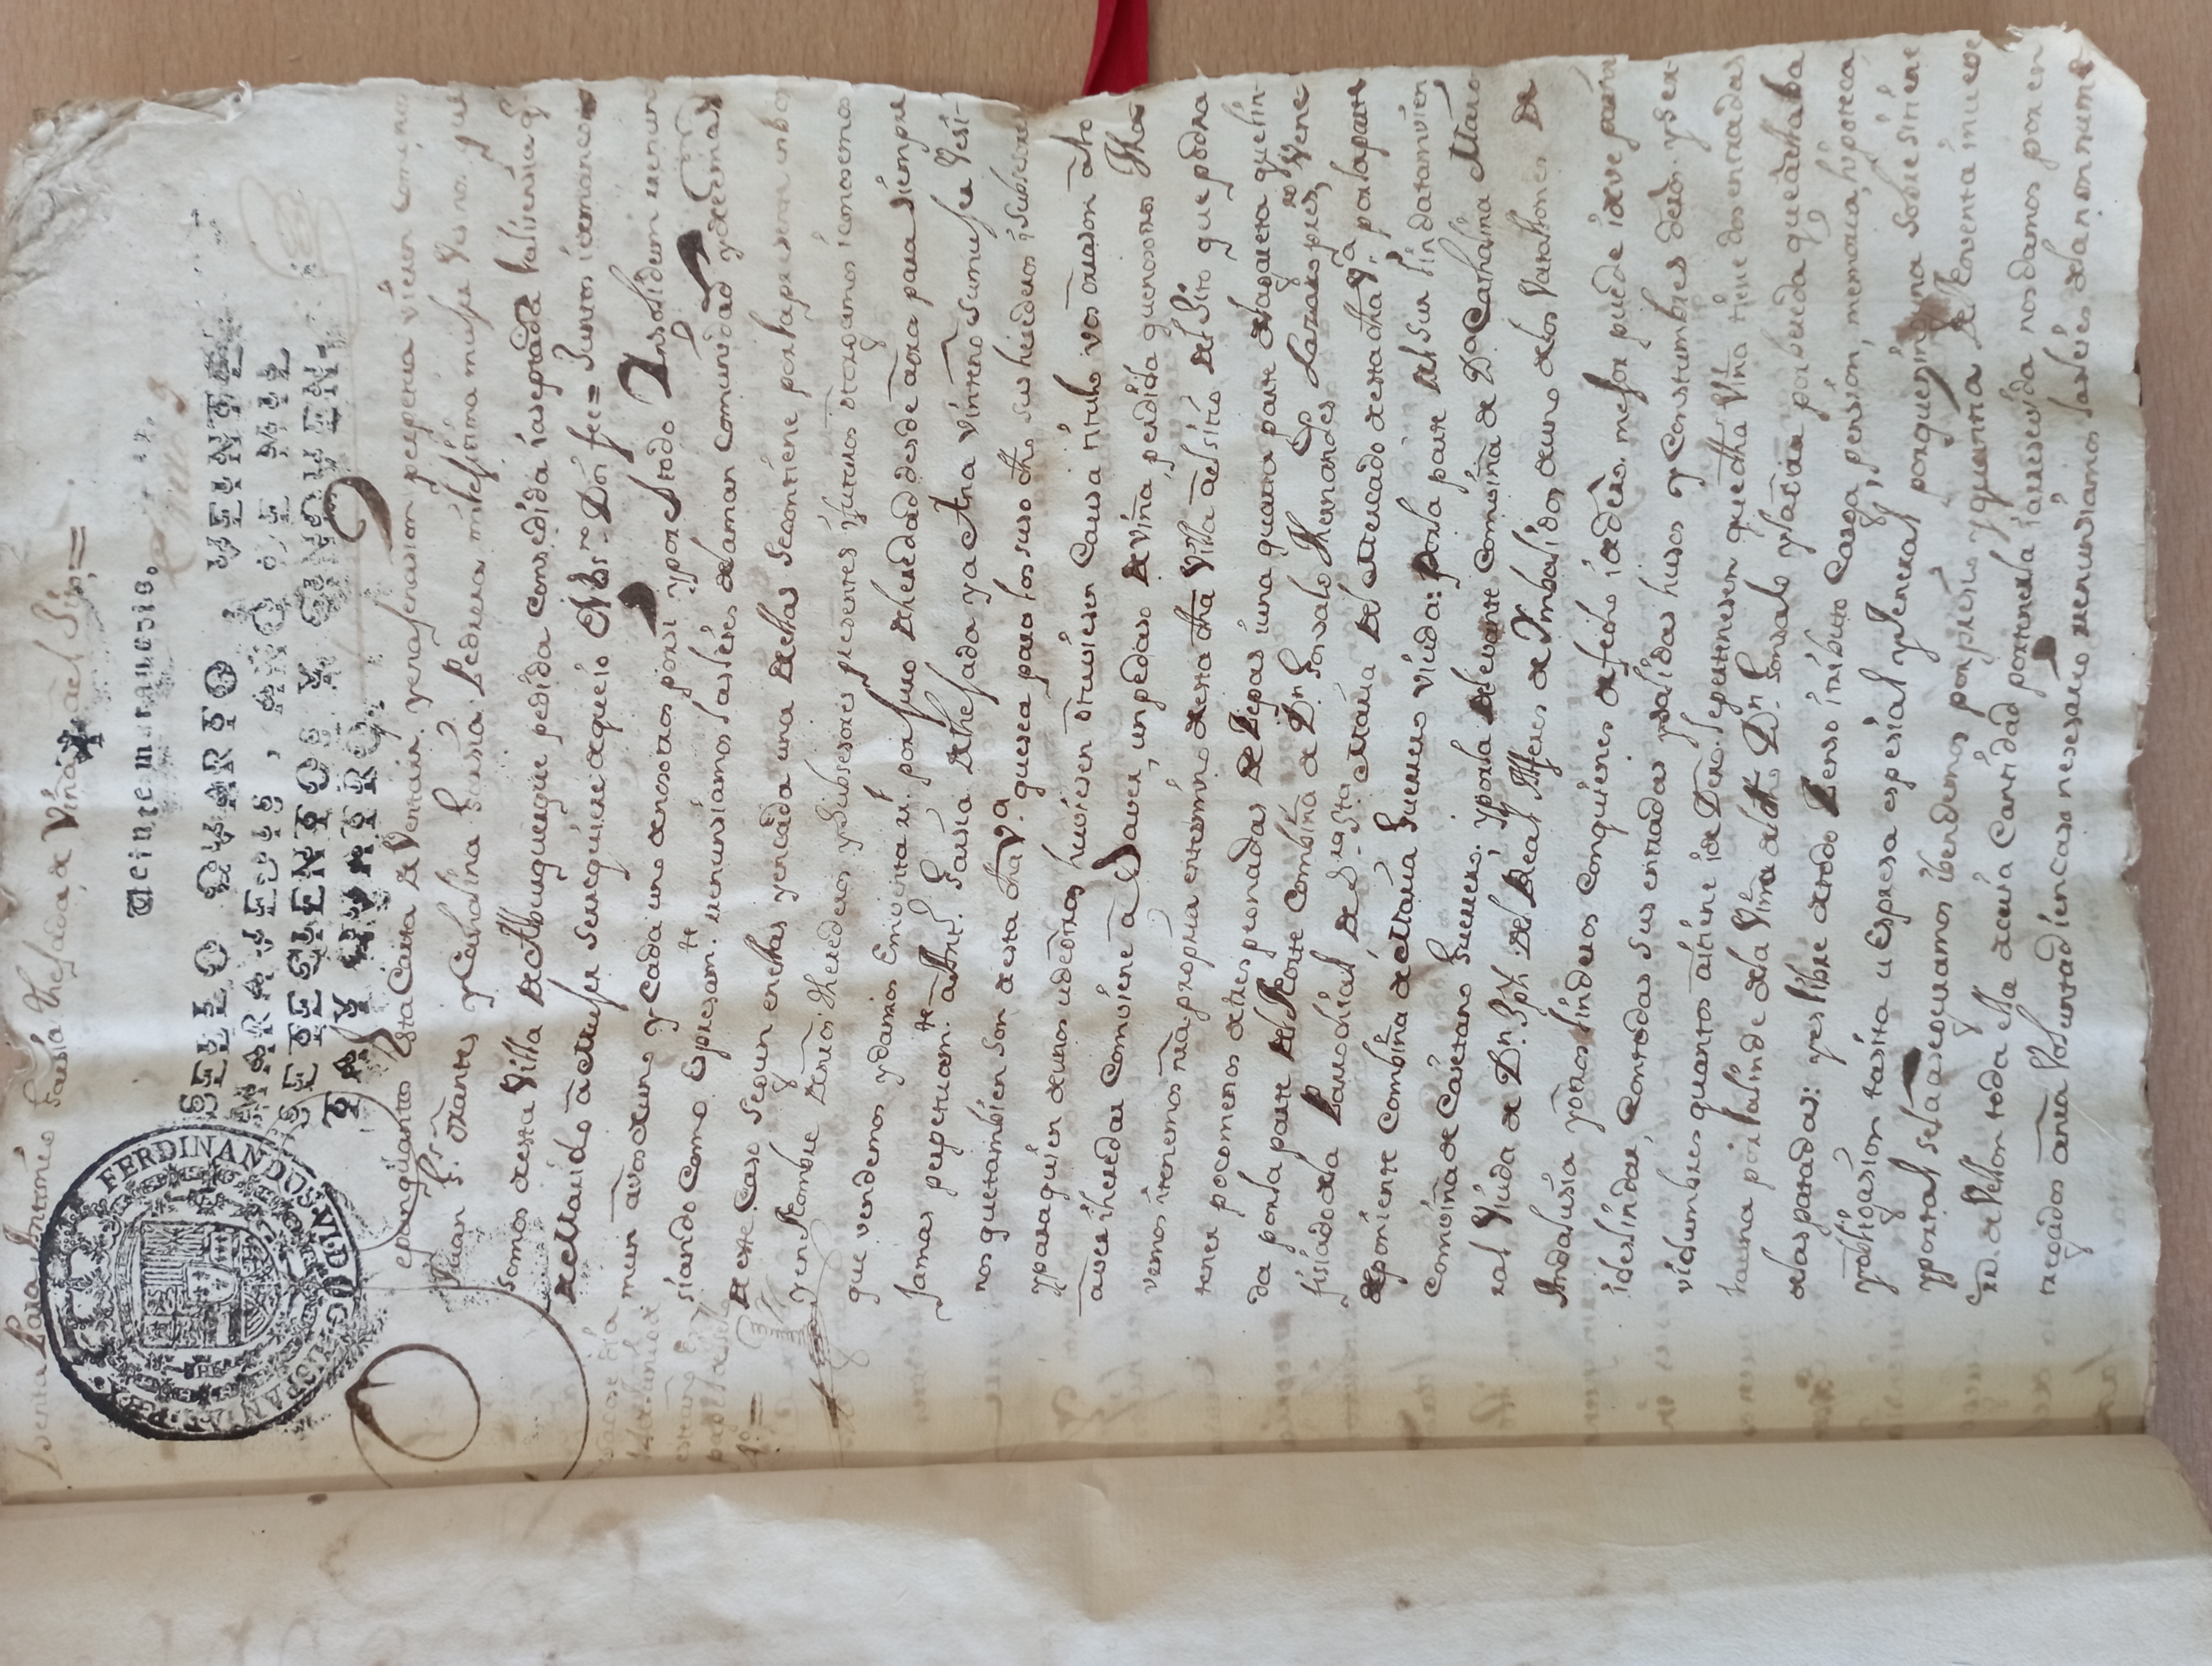 Venta Para Antonio Garsia Thesada de Viña ael Sito =
Veinte maravedis.
Enero 9
FERDINANDUS.VI.D.G.HISPANIAR.REX.
SELLO QVARTO, VEINTE
MARAVEDIS, AÑO DE MIL
SETECIENTOS Y CINQVEN-
TA Y QVATRO.
Sepan quantos Esta Carta de Venta rr. yenasenasion perpetua vieren Como nos
Juan Gs. orantes y Cathalina Garsia Pedrera mi lesitima muser Vesinos que
somos desta Villa de Alburquerque pedida Consedida i aseptada la lisensia q.
de Marido a Muser se rrequiere de que io el Essno. Doi fee = Juntos i de mancomun
mun a vos de uno y Cada uno de nosotros por si y por el todo Insolidum rrenun
siando Como Espresamte. rrenunsiamos las leies de la man Comunidad y de emas
de este Caso segun en ellas y en cada una de ellas se contiene por la presente en bos
y en Nombre de nros. Herederos y Subsesores presentes i futuros otorgamos i conosemos
que vendemos y damos Em venta rr. por Juro de heredad desde aora para siempre
Jamas perpetuamte. a Anto. Garsia de thesada y a Ana vinteño su muser Vesi-
nos que tambien son de esta dha Va. que sea para los suso dho sus herederos i Subsesores
y para quien de unos u de otros huviesen otuviesen Causa titulo vos o rrason a lo
aver i heredar Comviene a Saver, un pedaso de viña perdida que nosotros Ha-
vemos i tenemos nra. propria en termino de esta dha Villa ael sitio del Sito que podra
tener poco menos de tres peonadas de Zepas i una quarta parte de lagareta que lin-
da por la parte del Norte Combiña de Dn. Gonsalo Hernandes Lazaro presro. Vene-
fisiado de la Parrochial de Sra. Sta. Maria del Mercado de esta dha Va. por la parte
de poniente Combiña de Maria Guerrero viuda: por la parte del Sur linda tamvien
Comviña de Caietano Guerrero; y por la de levante Comviña de Da. Cathalina Maio-
ral Viuda de Dn. Jph. del Real Alferes de Ymbalidos de uno de los Vatallones de
Andalusia y otros linderos Con quienes de fecho i de dero. mesor puede i deve partir
i deslindar, Con todas Sus entradas y salidas husos y Constumbres deros. y Ser-
vidumbres quantos a i tiene i de Dero. le pertenesen que dha Viña tiene dos entradas
la una por la linde de la Viña del dho Dn. Gonsalo y la otra por bereda que ael aba
de las patadas: y es libre de todo Zenso i tributo Carga pension, memoria, hipoteca
y obligasion tasita u Espresa espesial y Jeneral porque ninguna sobre si tiene
y por tal se la aseguramos i bendemos por presio y quantia de Noventa i nueve
rrs. de Vellon toda ella de cuia Cantidad por tenerla i a rresevida nos damos por en
tregados a nra Voluntad i en caso nesesario rrenunsiamos las leies de la non nume-
sacose dia
14 de Junio de
este año En
papel del sello
4o. =